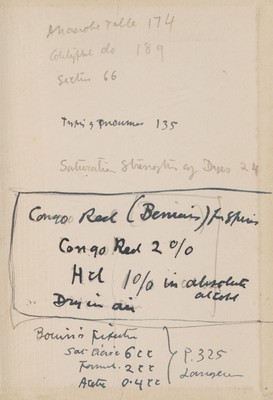 Anaerobe Table 174
do 189
Section 66
Types of Pneumos 135
Saturation Strengths of Dyes 24
Congo Red (Benians) for Spiros
Congo Red 2 %
Hcl 1% in absolute alcohol
Dry in air
Bouin's Fixative
Sat. Picric 6cc
Formol. 2cc
Acetic 0.4cc
P. 325
Langeron